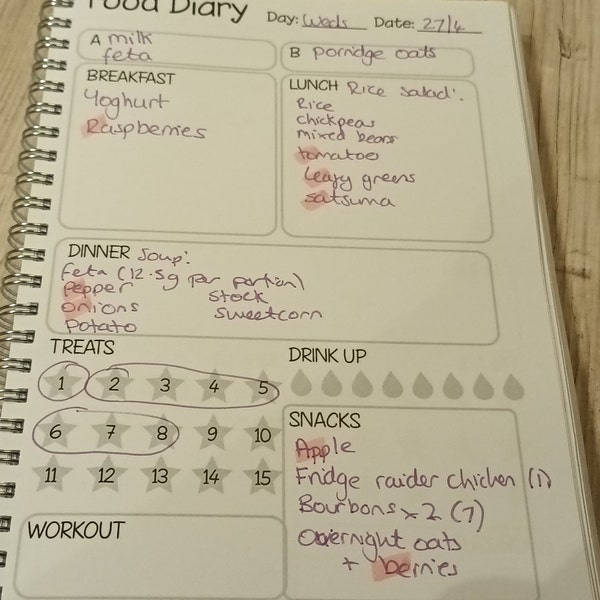 Food Diary
Day: Weds Date: 27/4
A milk
feta
B porridge oats
BREAKFAST
Yoghurt
Raspberries
LUNCH Rice salad:
Rice
chickpeas
mixed beans
tomatoe
leafy greens
satsuma
DINNER Soup:
Feta (12.5g per portion)
Pepper
stock
Onions
sweetcorn
Potato
TREATS
1 2 3 4 5
6 7 8 9 10
11 12 13 14 15
DRINK UP
SNACKS
Apple
Fridge raider chicken (1)
Bourbons x 2 (7)
Overnight oats
+ berries
WORKOUT